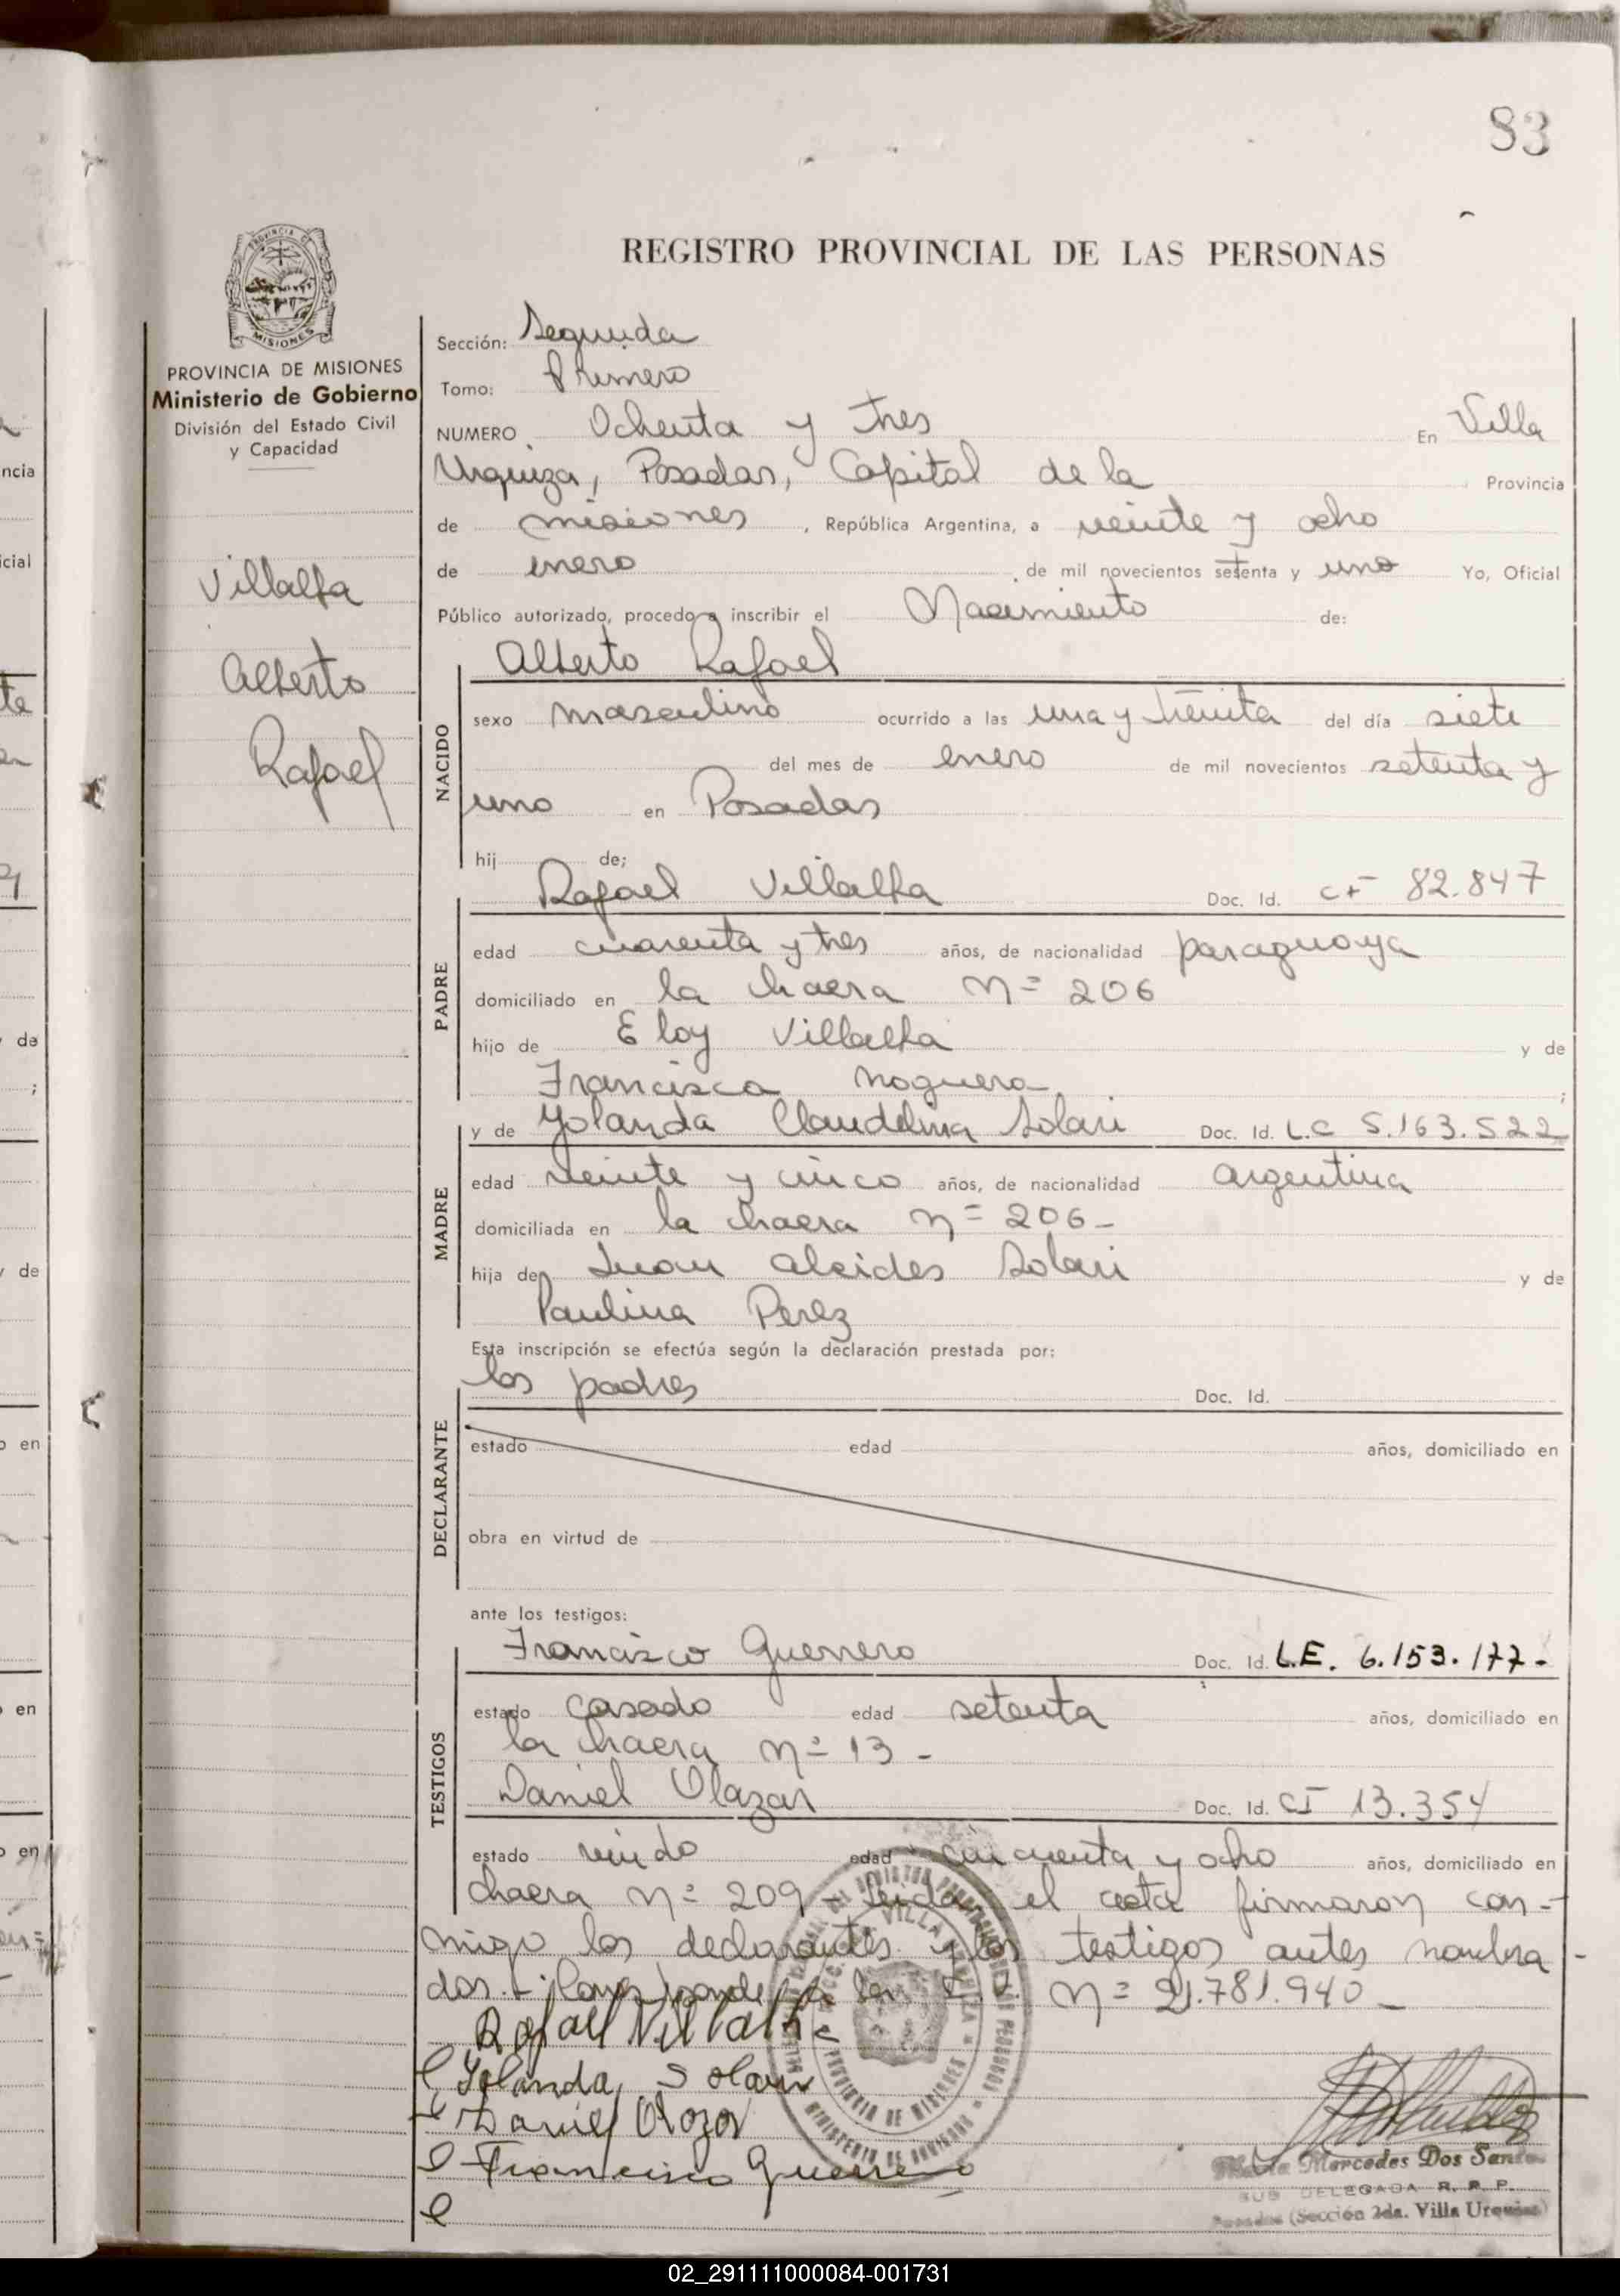 83
REGISTRO PROVINCIAL DE LAS PERSONAS
MISIONES
PROVINCIA DE MISIONES
Ministerio de Gobierno
División del Estado Civil
y Capacidad
Villalba
Alberto
Rafael
Sección: Segunda
Tomo: Primero
NUMERO Ochenta y tres En Villa
Urquiza, Posadas, Capital de la Provincia
de misiones, República Argentina, a veinte y ocho
de enero de mil novecientos setenta y uno Yo, Oficial
Público autorizado, procedo a inscribir el Nacimiento de:
Alberto Rafael
NACIDO
sexo masculino ocurrido a las una y treinta del día siete
del mes de enero de mil novecientos setenta y
uno en Posadas
hij de;
Rafael Villalba Doc. Id. 82.847
PADRE
edad cuarenta y tres años, de nacionalidad paraguaya
domiciliado en la chacra Nº 206
hijo de Eloy Villalba y de
Francisca Noguera ;
y de Yolanda Claudelina Solari Doc. Id. L.C 5.163.522
MADRE
edad veinte y cinco años, de nacionalidad argentina
domiciliada en la chacra nº 206-
hija de Juan Alcides Solari y de
Paulina Perez
Esta inscripción se efectúa según la declaración prestada por:
los padres Doc. Id.
DECLARANTE
estado edad años, domiciliado en
obra en virtud de
ante los testigos:
Francisco Guerrero Doc. Id. L.E. 6.153.177-
TESTIGOS
estado casado edad setenta años, domiciliado en
la chacra nº 13-
Daniel Olazar Doc. Id. CI 13.354
estado viudo edad cincuenta y ocho años, domiciliado en
chacra nº 209- Leida el acta firmaron con-
migo los declarantes y los testigos antes nombra-
dos.- nº 21.781.940-
Rafael Villalba
Yolanda Solari
Daniel Olazar
Francisco Guerrero
Mercedes Dos Santos
SUB DELEGADA R. P. P.
Posadas (Sección 2da. Villa Urquiza)
02_291111000084-001731